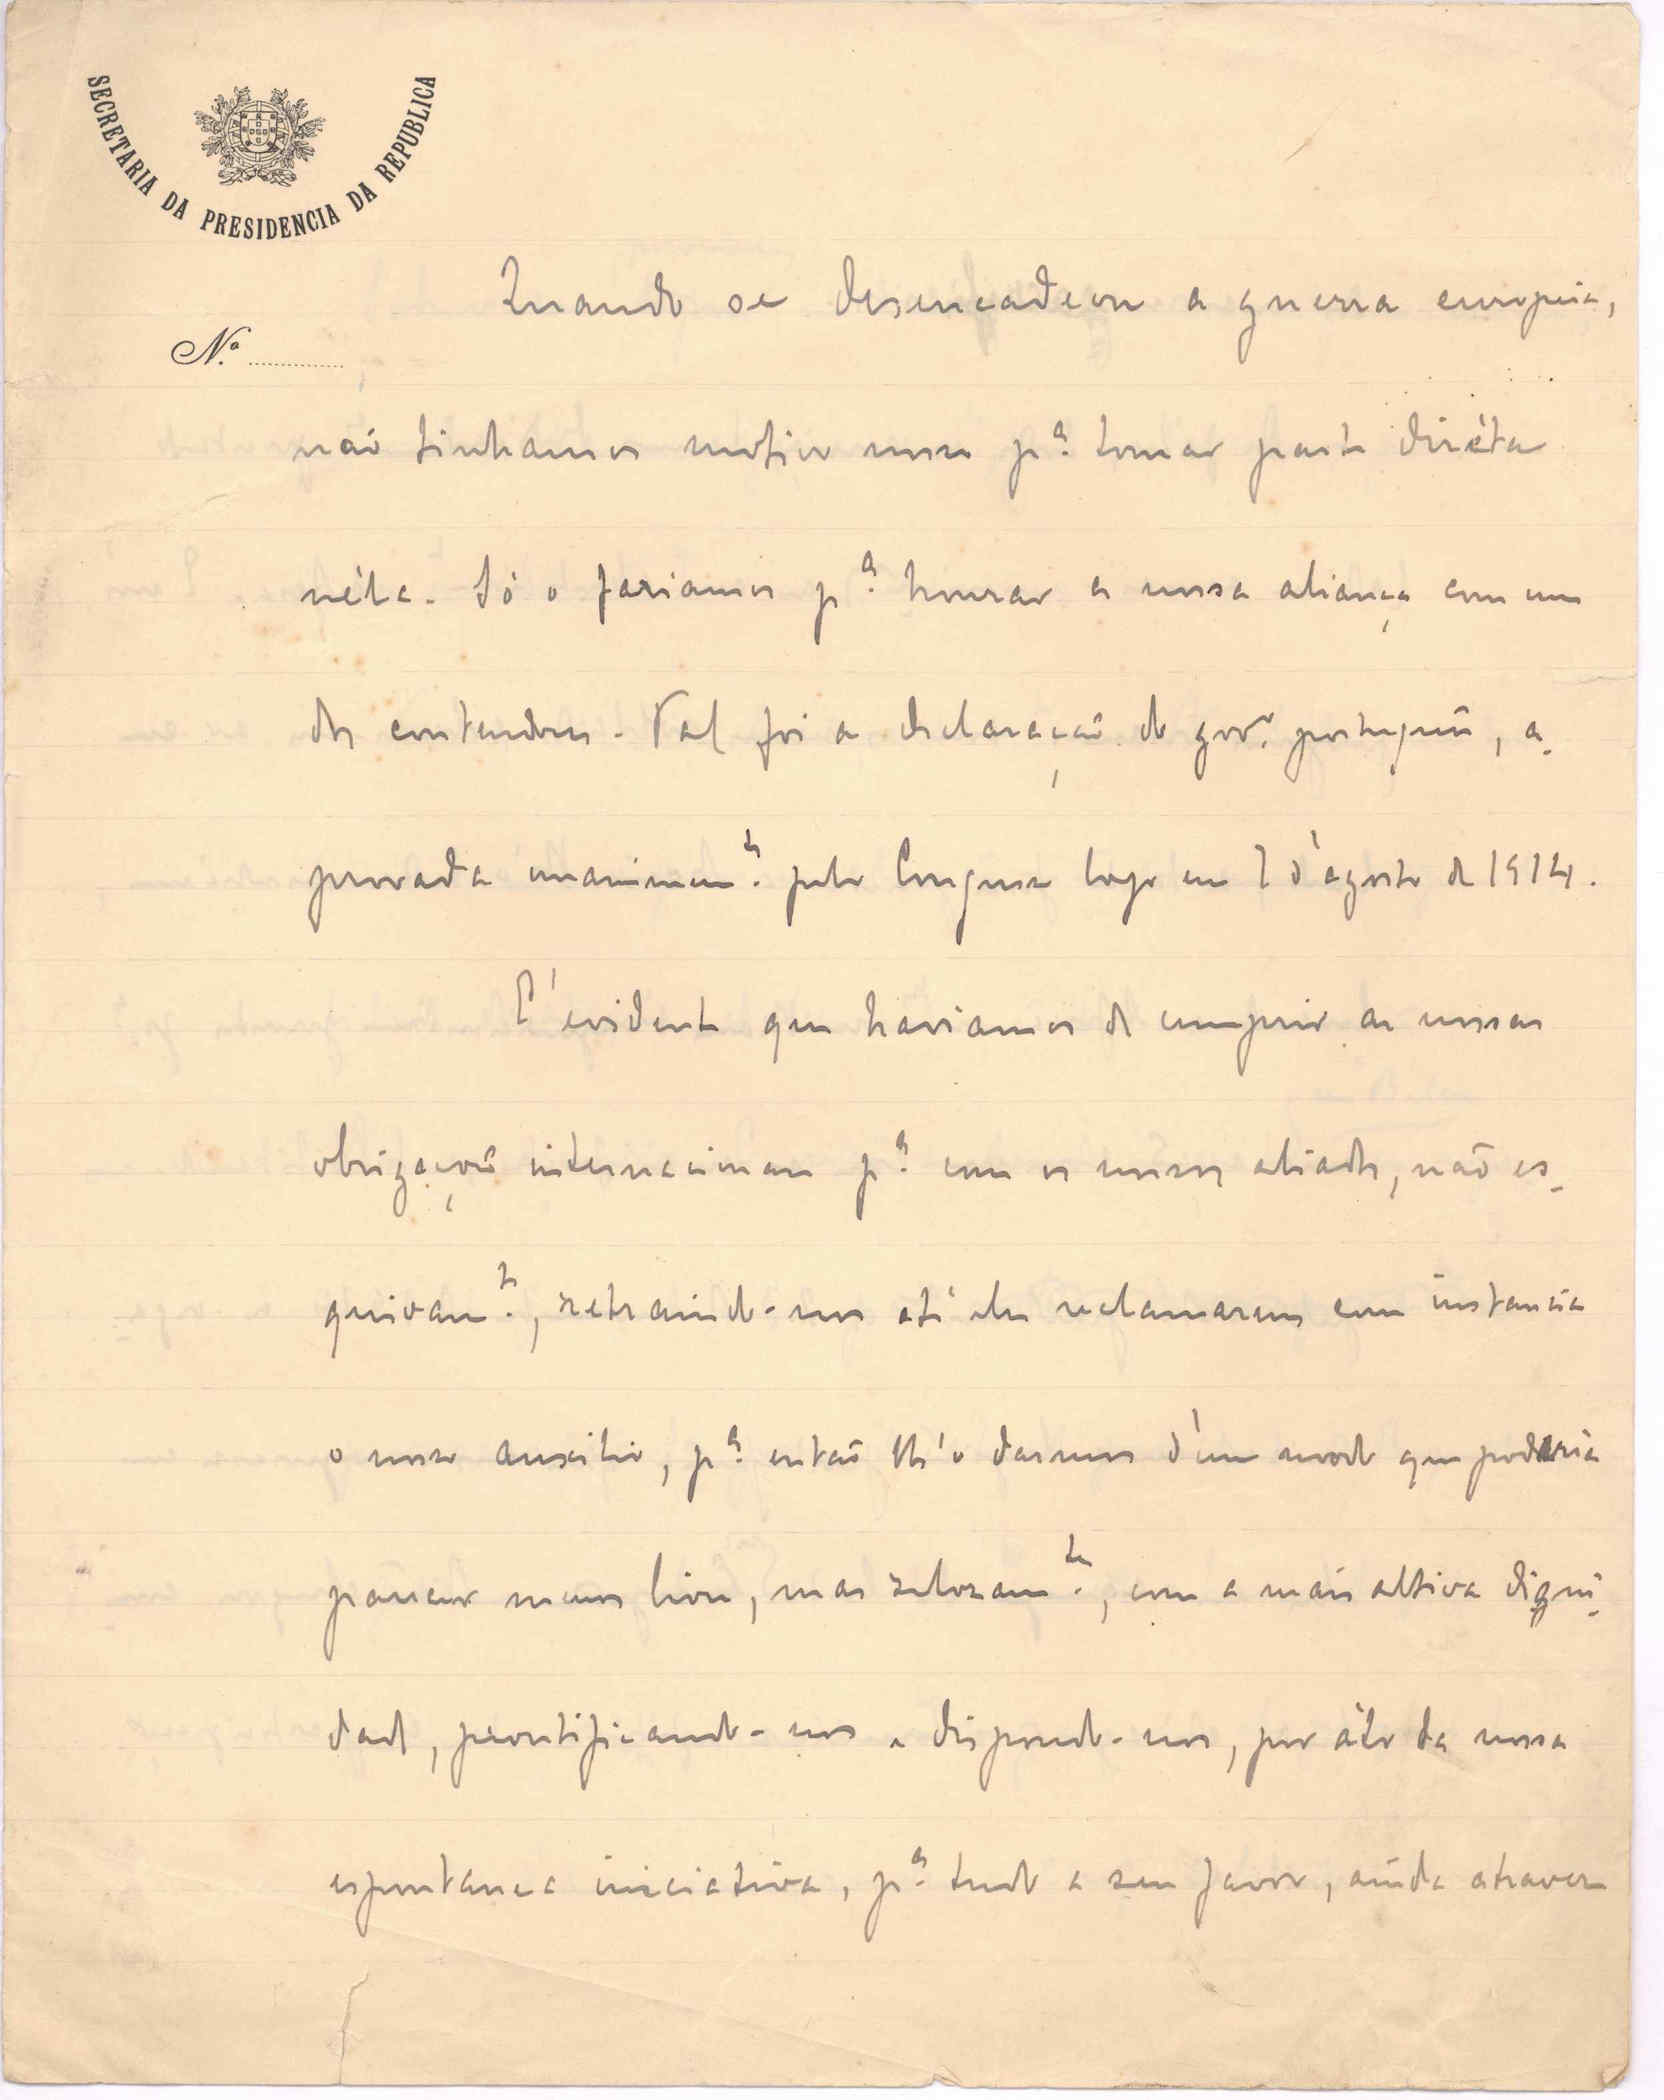 SECRETARIA DA PRESIDENCIA DA REPUBLICA
Quando se desencadeou a guerra europeia,
N.º
não tinhamos motivo nosso p.ª tomar parte dirèta
néla. Só o fariamos p.ª honrar a nossa aliança com um
dos contendores. Tal foi a declaração do gov.º português, a-
provada unanimem.te pelo Congresso logo em 7 d'agosto de 1914.
É evidente que haviamos de cumprir as nossas
obrigações internacionaes p.ª com os nossos aliados, não es-
quivam.te, retraindo-nos até eles reclamarem com instancia
o nosso auxilio, p.ª então lh'o darmos d'um modo que poderia
parecer menos livre, mas zelozam.te, com a mais altiva digni-
dade, prontificando-nos e dispondo-nos, por áto da nossa
espontanea iniciativa, p.ª tudo a seu favor, ainda atravez